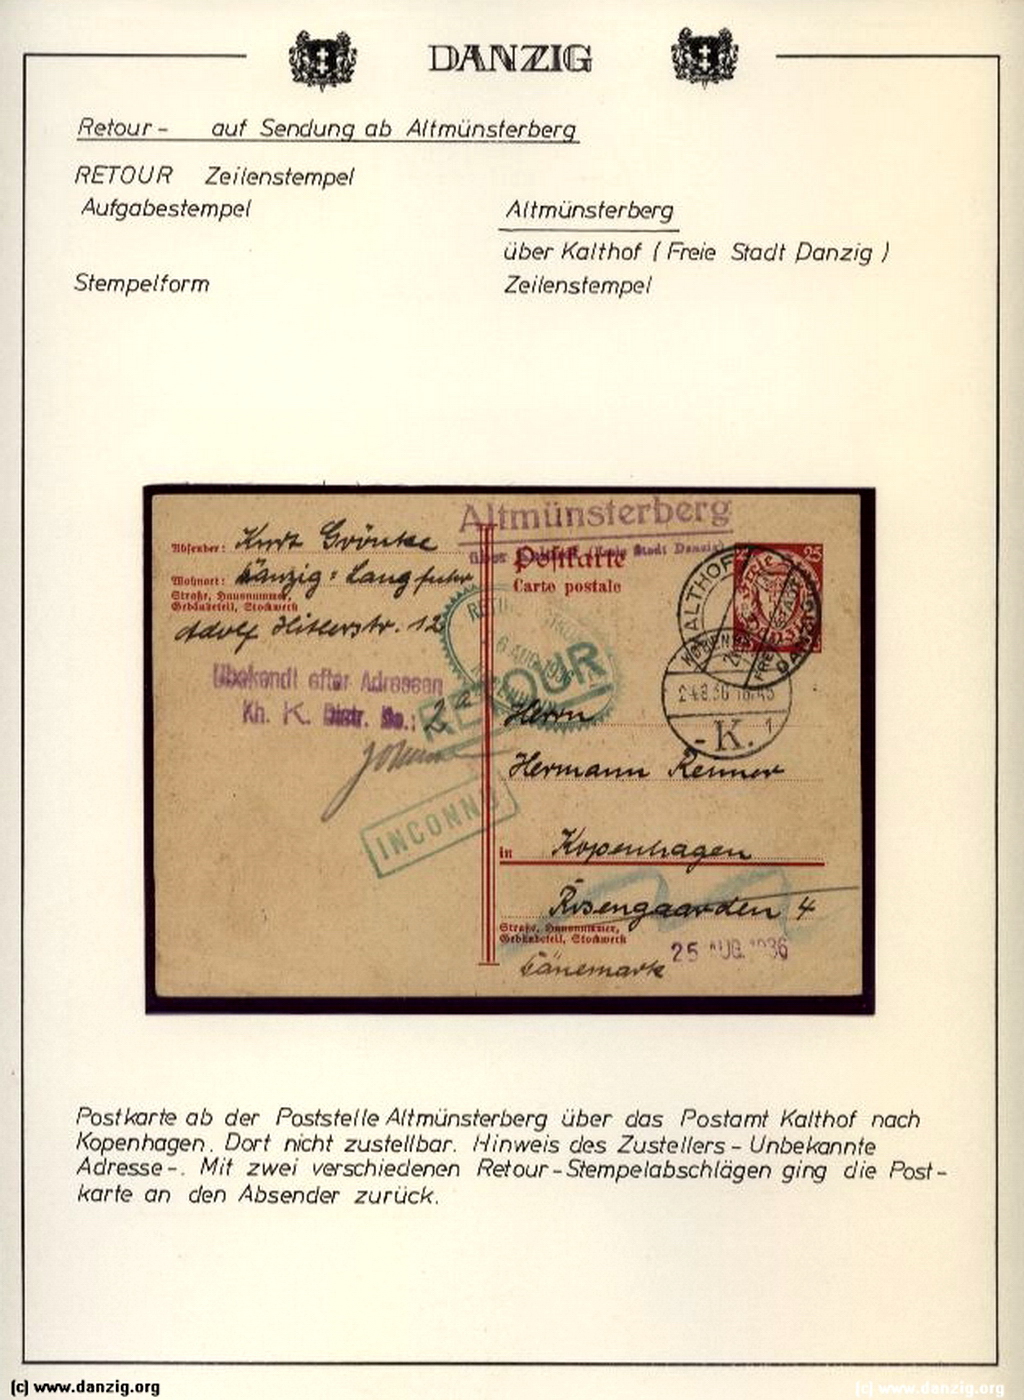 DANZIG
Retour - auf Sendung ab Altmünsterberg
RETOUR Zeilenstempel
Aufgabestempel Altmünsterberg
über Kalthof (Freie Stadt Danzig)
Stempelform Zeilenstempel
Altmünsterberg
über (Freie Stadt Danzig)
Absender: Kurt
Postkarte
Carte postale
Wohnort: Danzig-Langfuhr
Straße, Hausnummer,
Gebäudeteil, Stockwerk
Adolf Hitlerstr. 12
25
KALTHOF
FREIE STADT DANZIG
6 AUG. 1936
RETOUR
Ubekendt efter Adressen
Kh. K. Distr. No.: 2a
24.8.36 18.45
- K. 1
Herrn
Hermann Renner
INCONNU
in Kopenhagen
Rosengaarden 4
Straße, Hausnummer,
Gebäudeteil, Stockwerk
Dänemark
25 AUG. 1936
Postkarte ab der Poststelle Altmünsterberg über das Postamt Kalthof nach
Kopenhagen. Dort nicht zustellbar. Hinweis des Zustellers - Unbekannte
Adresse -. Mit zwei verschiedenen Retour-Stempelabschlägen ging die Post-
karte an den Absender zurück.
(c) www.danzig.org
(c) www.danzig.org